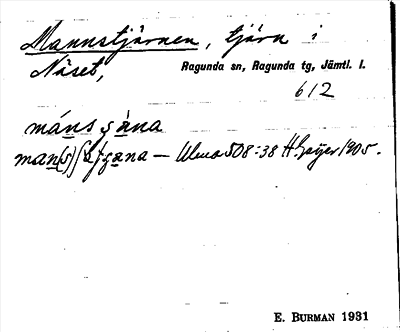 Mannstjärnen, tjärn i
Näset, Ragunda sn, Ragunda tg, Jämtl. l.
612
máns
— Ulma 508:38 H. Geijer 1905.
E. BURMAN 1931